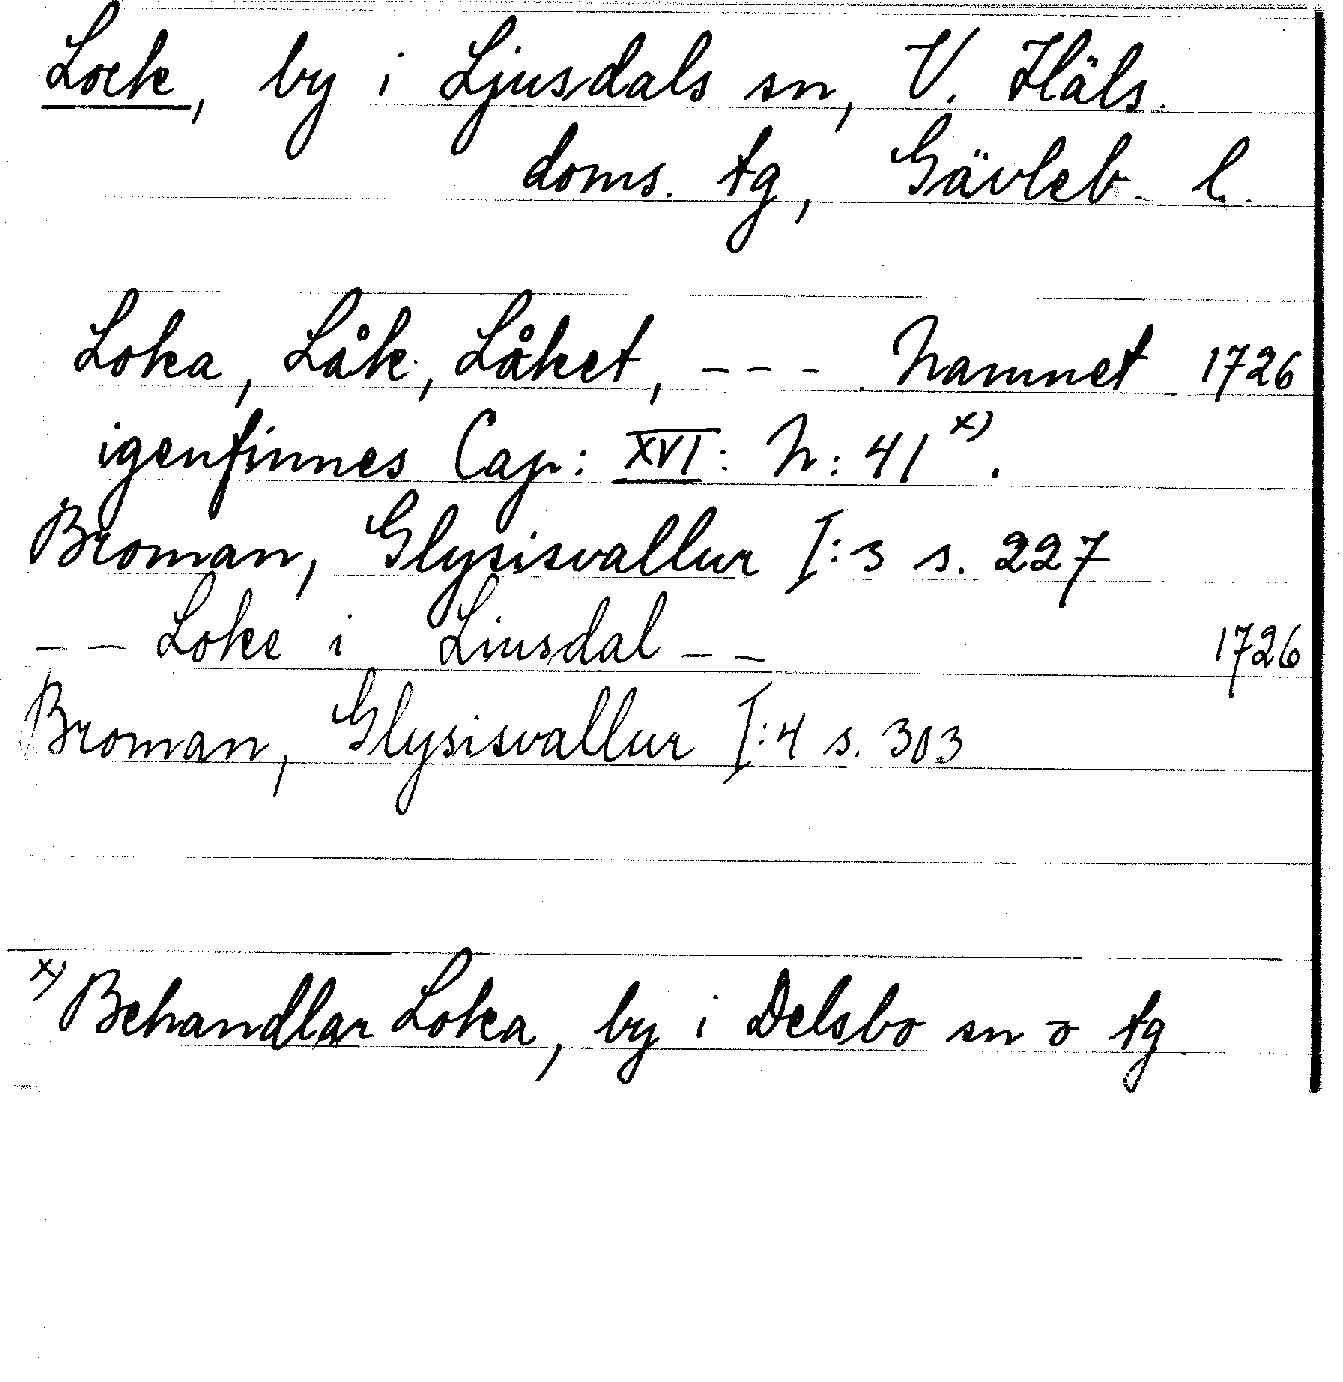 Lock, by i Ljusdals sn, V. Häls.
doms. tg, Gävleb. l.
Loka, Låk, Låket, --- Namnet 1726
igenfinnes Cap: XVI: N: 41 x).
Broman, Glysisvallur I:3 s. 227
-- Loke i Liusdal -- 1726
Broman, Glysisvallur I:4 s. 303
x) Behandlar Loka, by i Delsbo sn o tg